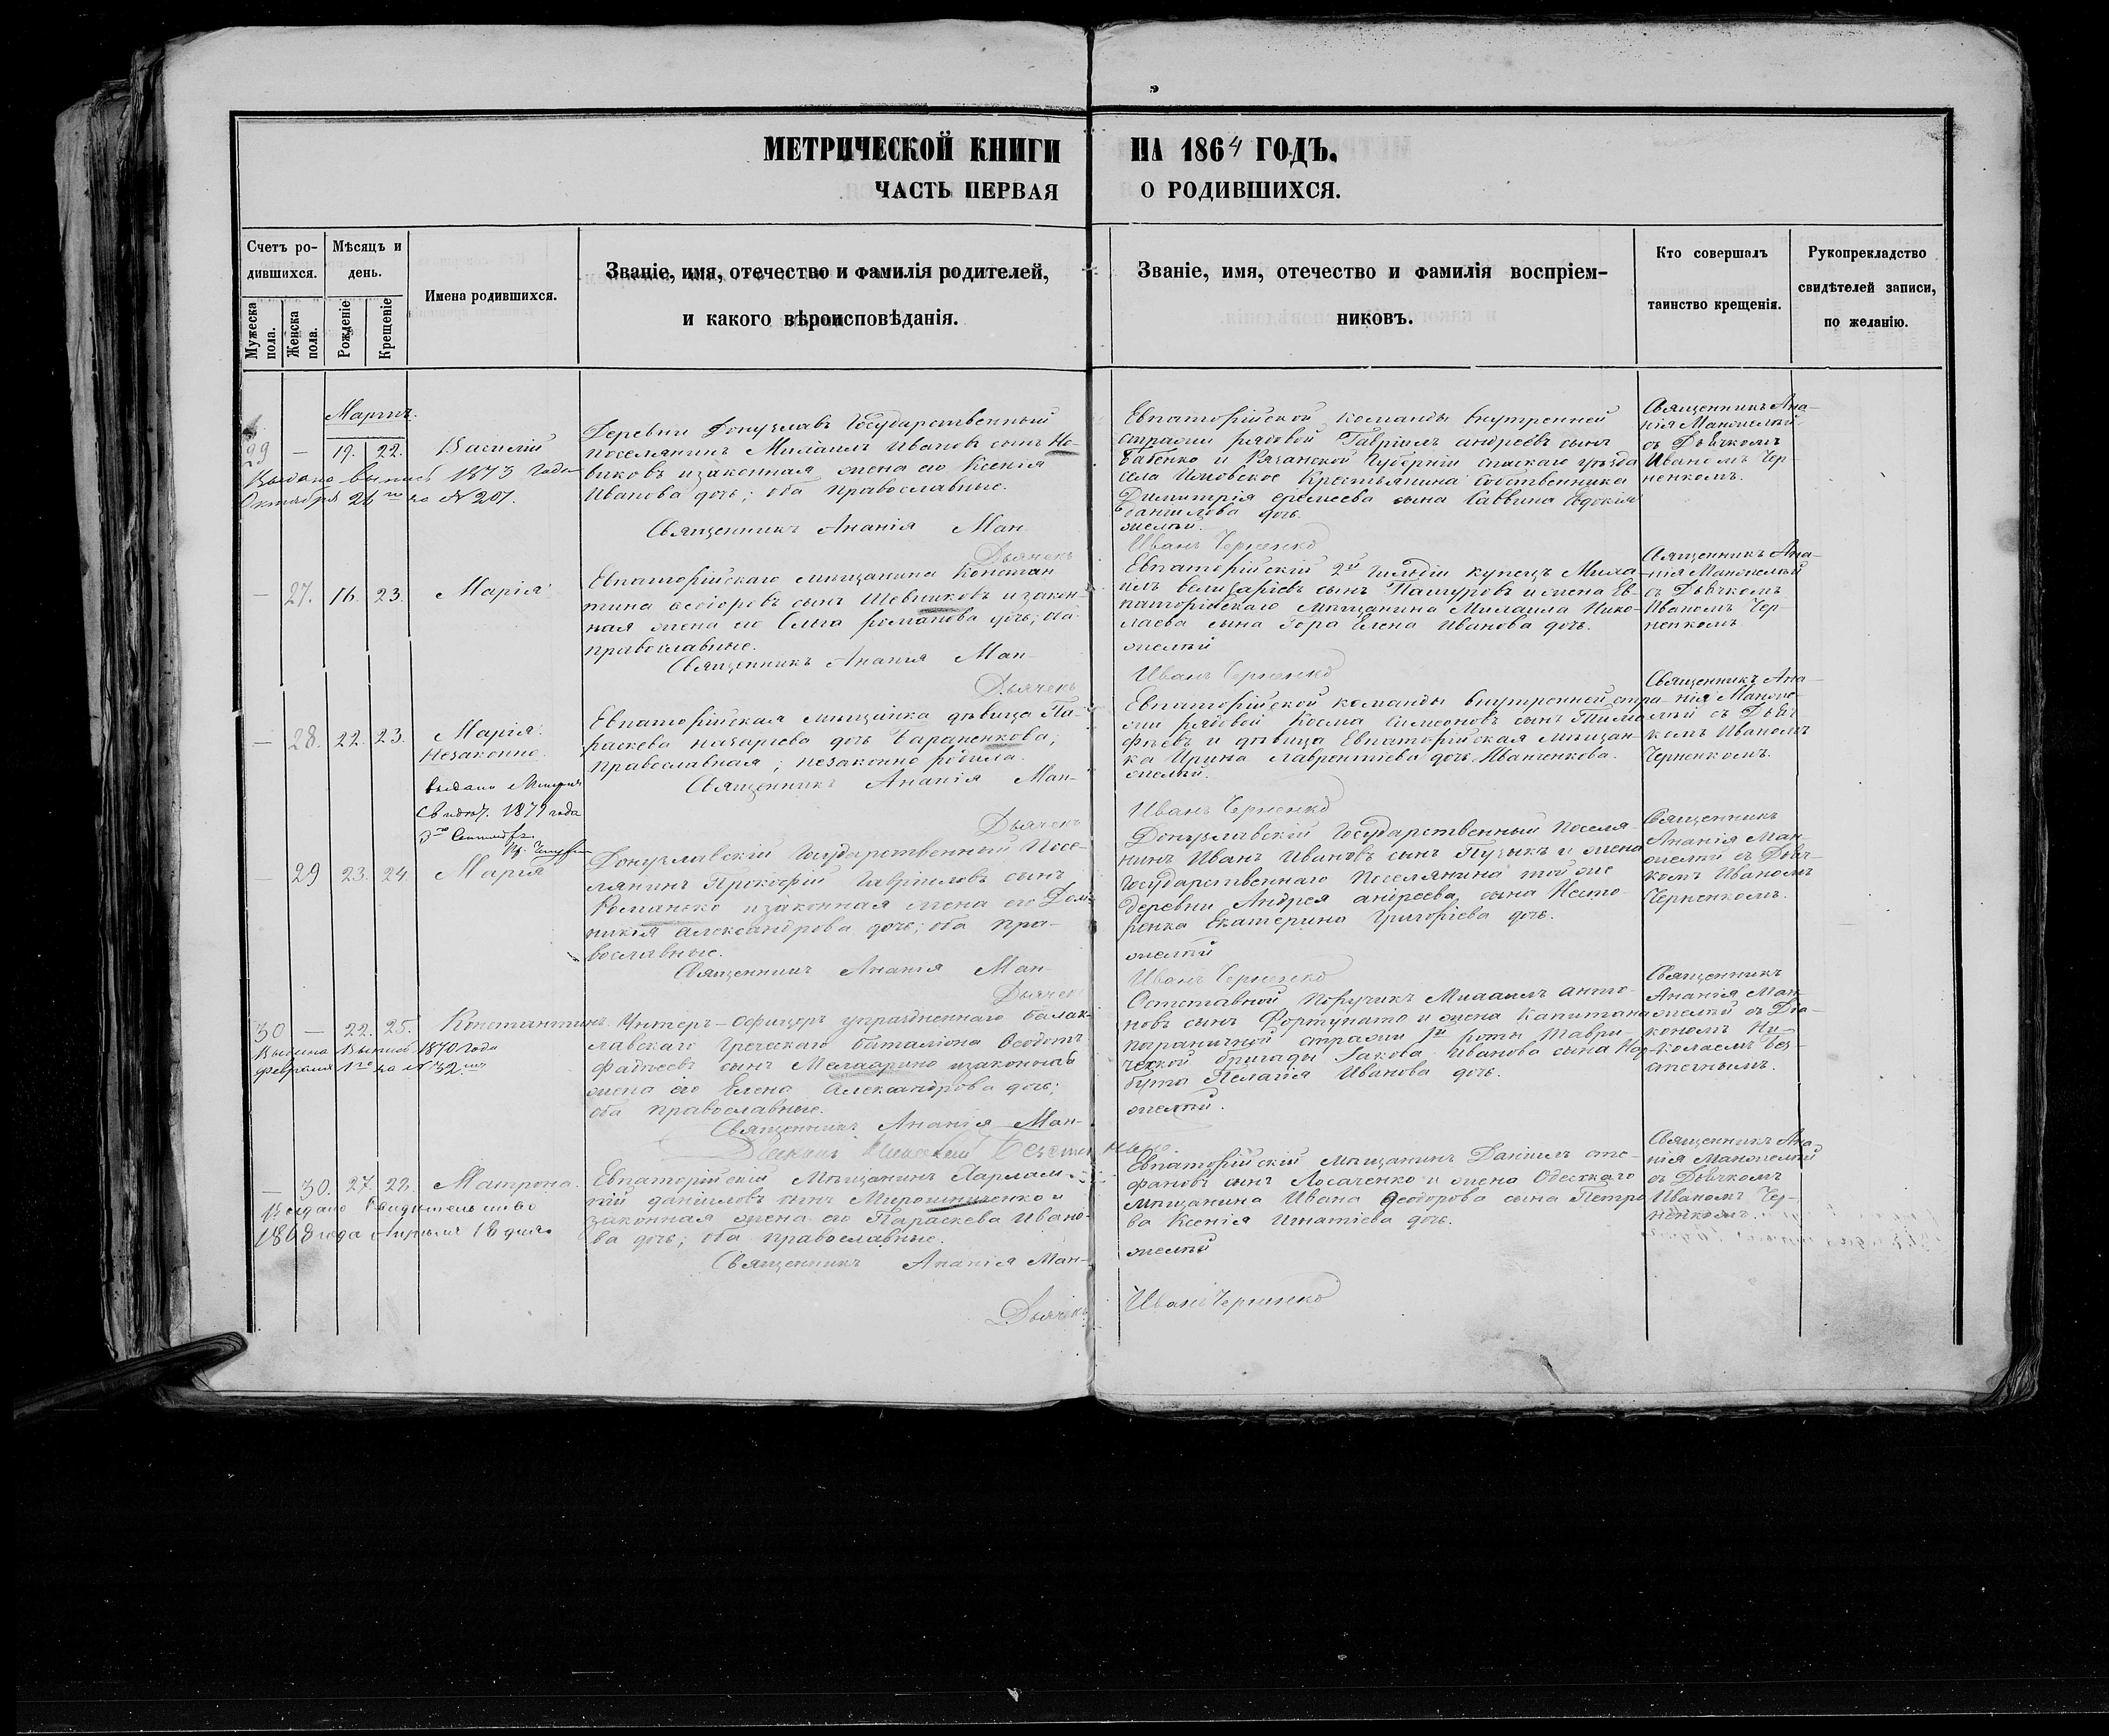 МЕТРИЧЕСКОЙ КНИГИ НА 1864 ГОДЪ.
ЧАСТЬ ПЕРВАЯ О РОДИВШИХСЯ.
Счетъ ро-
дившихся.
Мужеска пола.
Женска пола.
Мѣсяцъ и
день.
Рожденіе
Крещеніе
Имена родившихся.
Званіе, имя, отечество и фамилія родителей,
и какого вѣроисповѣданія.
Званіе, имя, отечество и фамилія воспріем-
никовъ.
Кто совершалъ
таинство крещенія.
Рукопрекладство
свидѣтелей записи,
по желанію.
Мартъ.
29 — 19. 22. Василій
Выдана выпись 1873 года
Октября 26го за N 207.
Деревни Донузлавъ Государственный
поселянинъ Михаилъ Ивановъ сынъ Но-
виковъ и законная жена его Ксенія
Иванова дочь; оба православные.
Священникъ Ананія Ман-
Дьячекъ
Евпаторійской команды внутренней
стражи рядовой Гавріилъ Андреевъ сынъ
Бабенко и Рязанской Губерніи спаскаго уѣзда
села Ижовское Крестьянина собственника
Димитрія еремеева сына Саввина Евдокія
данилова дочь.
жеілй.
Иванъ Черненко
Священникъ Ана-
нія Манжелѣй
съ Дьячкомъ
Иваномъ Чер-
ненкомъ.
— 27. 16. 23. Марія
Евпаторійскаго мѣщанина Констан
тина Ѳеодоровъ сынъ Шевниковъ и закон-
ная жена его Ольга романова дочь; оба
православные.
Священникъ Ананія Ман-
Дьячекъ
Евпаторійскій 2й гильдіи купецъ Миха-
илъ Велисаріевъ сынъ Пашуровъ и жена Ев-
паторійскаго мѣщанина Михаила Нико-
лаева сына Гора Елена Иванова дочь.
желѣй
Иванъ Черненко
Священникъ Ана-
нія Манжелѣй
съ Дьячкомъ
Иваномъ Чер-
ненкомъ
— 28. 22. 23. Марія.
Незаконно.
выдано Метрич.
Свидѣт. 1879 года
3го Сентября
Евпаторійская мѣщанка дѣвица Па-
раскева назарьева дочь Тараненкова;
православная; незаконно родила.
Священникъ Ананія Ман-
Дьячекъ
Евпаторійской команды внутренней стра
жи рядовой Косма Симеоновъ сынъ Тимо
фѣевъ и дѣвица Евпаторійская мѣщан
ка Ирина Лаврентіева дочь Иванченкова.
желѣй.
Иванъ Черненко
Священникъ Ана-
нія Манже-
лѣй съ Дьяч
комъ Иваномъ
Черненкомъ.
— 29 23. 24. Марія
Донузлавскій Государственный Посе-
лянинъ Прокофій Гавріиловъ сынъ
Романько и законная жена его Дом-
никія Александрова дочь; оба пра-
вославные.
Священникъ Ананія Ман-
Дьячекъ
Донузлавскій Государственный Поселя-
нинъ Иванъ Ивановъ сынъ Пузыкъ и жена
Государственнаго Поселянина той же
деревни Андрея андреева сына Несто-
ренка Екатерина Григоріева дочь.
желѣй
Иванъ Черненко
Священникъ
Ананія Ман-
желѣй съ Дьяч-
комъ Иваномъ
Черненкомъ.
30 — 22. 25. Константинъ.
Выдана Выпись 1870 года
февраля 1го за N 32.
Унтеръ-Офицеръ упраздненнаго балак-
лавскаго Греческаго баталіона Ѳеодотъ
фадѣевъ сынъ и законная
жена его Елена Александрова дочь;
оба православные.
Священникъ Ананія Ман-
Діаконъ Николай Безпечный
Отставной Поручикъ Михаилъ Анто-
новъ сынъ Фортунато и жена Капитана
пограничной стражи 1й роты Таври-
ческой бригады Іакова Иванова сына На-
бута Пелагія Иванова дочь.
желѣй.
Священникъ
Ананія Ман-
желѣй съ Діа-
кономъ Ни-
колаемъ Без-
печнымъ.
— 30. 27. 28. Матрона.
Выдано Свидетельство
1868 года Апреля 18 дня
Евпаторійскій Мѣщанинъ Харлам-
пій даніиловъ сынъ Мирошниченко и
законная жена его Параскева Ивано-
ва дочь; оба православные.
Священникъ Ананія Ман-
Дьячекъ
Евпаторійскій мѣщанинъ Даніилъ сте-
фановъ сынъ Лосаченко и жена Одесскаго
мѣщанина Ивана Ѳеодорова сына Петро
ва Ксенія Игнатіева дочь.
желѣй
Иванъ Черненко
Священникъ Ана-
нія Манжелѣй
съ Дьячкомъ
Иваномъ Чер-
ненкомъ.